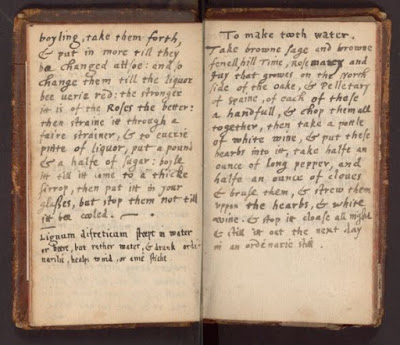 boyling, take them forth,
& put in more till they
be changed allsoe: and so
change them till the liquor
bee verie red: the stronger
it is of the Roses the better:
then straine it through a
faire strainer, & to euerie
pinte of liquor, put a pound
& a halfe of suger: boyle
it till it come to a thicke
sirrop, then put it in your
glasses, but stop them not till
it bee cooled.
Lignum in water
or beere, but rather water, & drunk ordi
narilie, healps wind, or anie stiche
To make tooth water.
Take browne sage and browne
fenell, hill Time, rosemarey and
that growes on the North
side of the oake, & Pelletary
of spaine, of each of these
a handfull, & chop them all
together, then take a potle
of white wine, & put these
hearbs into it, take halfe an
ounce of long pepper, and
halfe an ounce of cloues
& bruse them, & strew them
uppon the hearbs, & white
wine. & stop it cloase all night
& still it out the next day
in an ordenarie still.